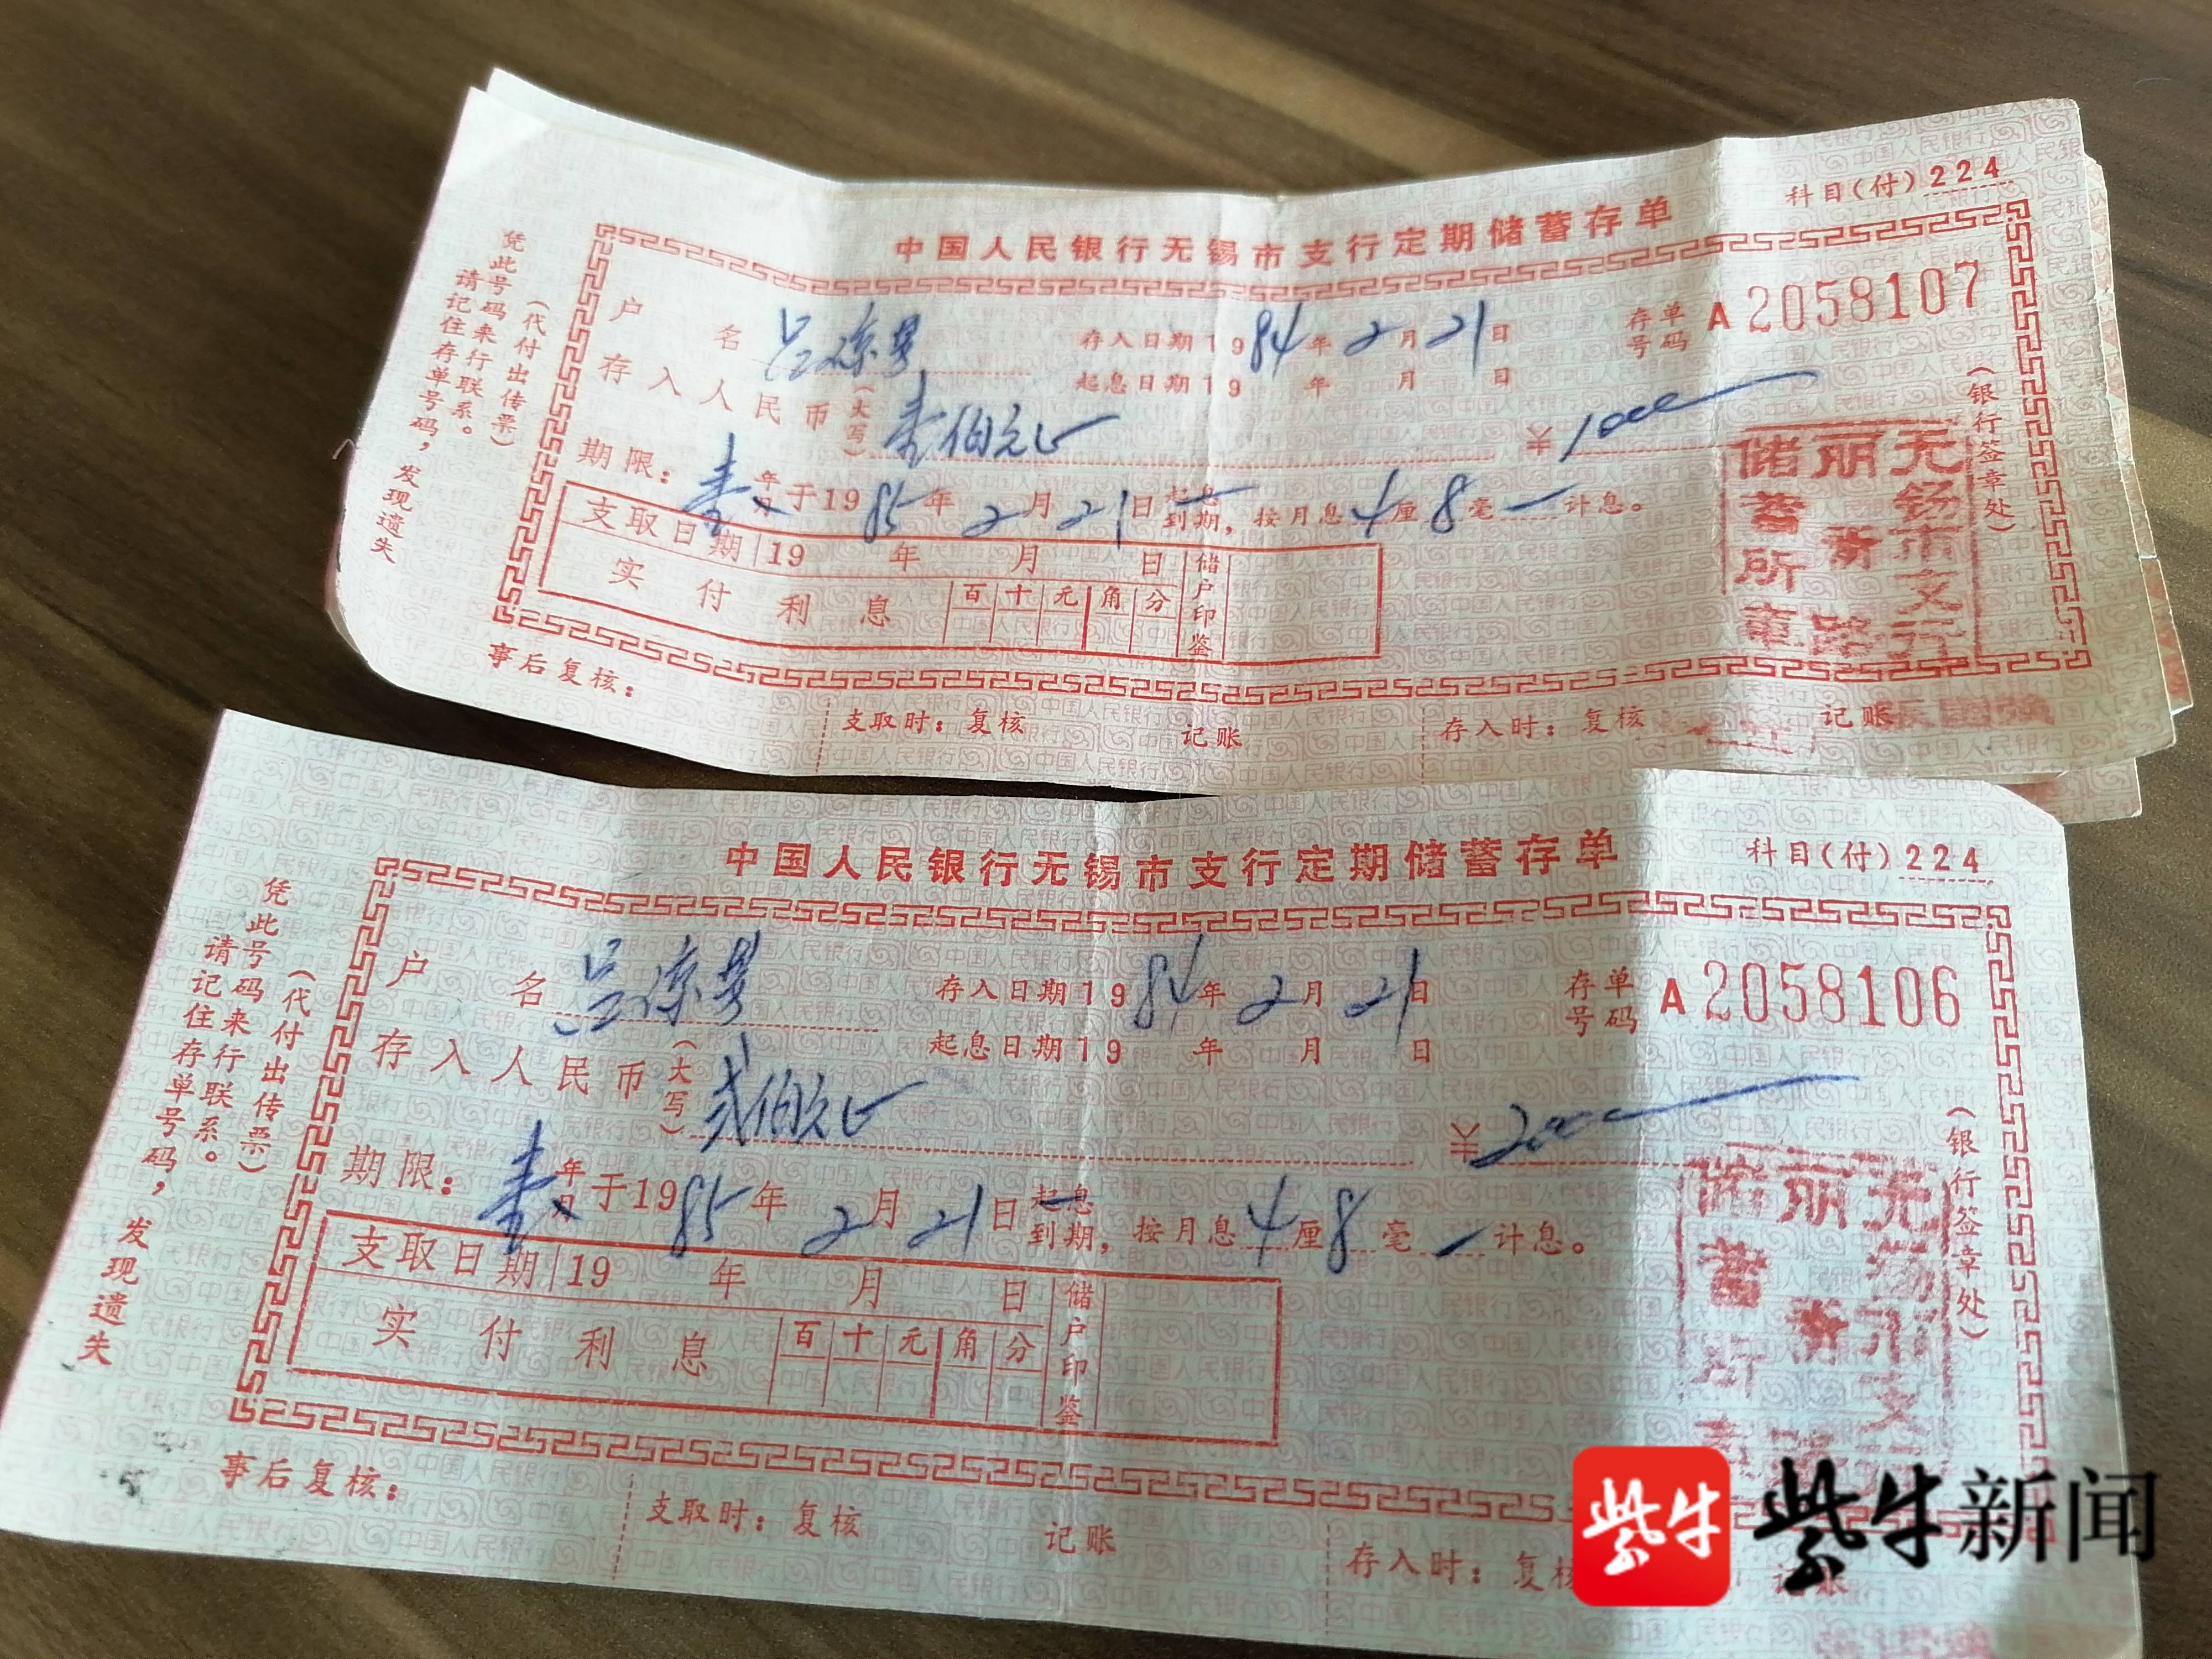 科目(付)224
中国人民银行无锡市支行定期储蓄存单
户 名 存入日期1984年2月21日 存单号码 A 2058107
起息日期19 年 月 日
存入人民币(大写)壹佰元正 ¥100
(银行签章处)
期限:壹年月于1985年2月21日起息到期,按月息4厘8毫计息。
支取日期 19 年 月 日 储户印鉴
实付利息 百 十 元 角 分
无锡市支行
丽新路
储蓄所章
事后复核:
支取时:复核 记账 存入时:复核 记账
(代付出传票)
凭此号码来行联系。
请记住存单号码,发现遗失
科目(付)224
中国人民银行无锡市支行定期储蓄存单
户 名 存入日期1984年2月21日 存单号码 A 2058106
起息日期19 年 月 日
存入人民币(大写)贰佰元正 ¥200
(银行签章处)
期限:壹年月于1985年2月21日起息到期,按月息4厘8毫计息。
支取日期 19 年 月 日 储户印鉴
实付利息 百 十 元 角 分
无锡市支行
丽新路
储蓄所章
事后复核:
支取时:复核 记账 存入时:复核 记账
(代付出传票)
凭此号码来行联系。
请记住存单号码,发现遗失
紫牛 紫牛新闻